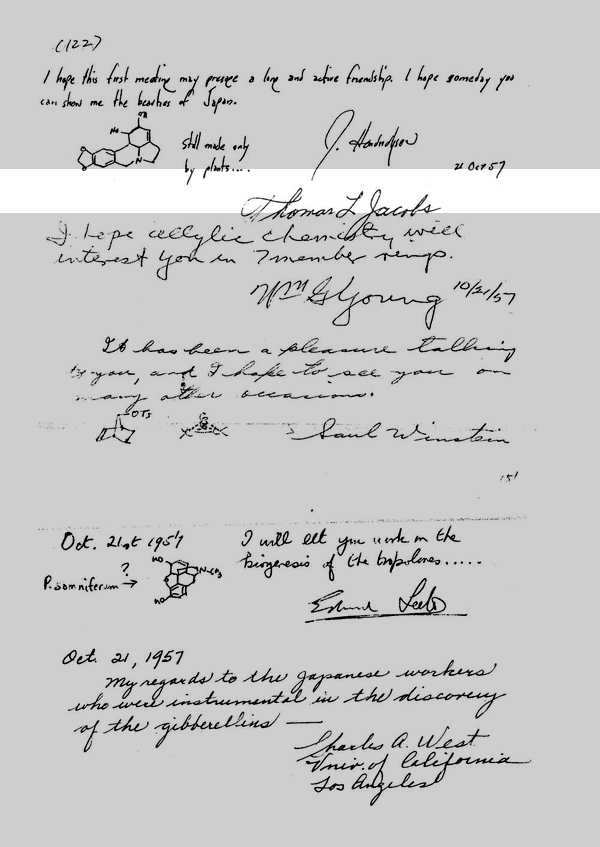 (122)
I hope this first meeting may presage a long and active friendship. I hope someday you
can show me the beauties of Japan.
OH
HO
O
O
N
still made only
by plants....
J.
21 Oct 57
Thomas L Jacobs
I hope allylic chemistry will
interest you in 7 member rings.
Wm G Young 10/21/57
It has been a pleasure talking
to you, and I hope to see you on
many other occasions.
OTS
Saul Winstein
151
Oct. 21st 1957
I will let you work on the
biogenesis of the tropolones.....
?
P. somniferum →
HO
N-CH3
HO
Edward Leete
Oct. 21, 1957
My regards to the Japanese workers
who were instrumental in the discovery
of the gibberellins —
Charles A. West
Univ. of California
Los Angeles